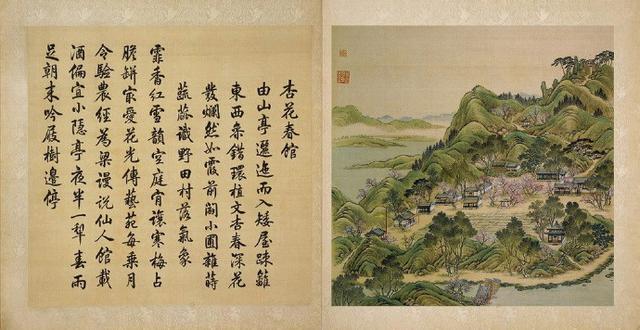 杏花春館
由山亭邐迤而入矮屋疎籬
東西叅錯環植文杏春深花
發爛然如霞前闢小圃雜蒔
蔬蓏識野田村落氣象
霏香紅雪韻空庭肎讓寒梅占
膽缾㝡愛花光傳藝苑每乗月
令驗農經為梁漫說仙人館載
酒偏宜小隱亭夜半一犂春雨
足朝來吟屐樹邊停